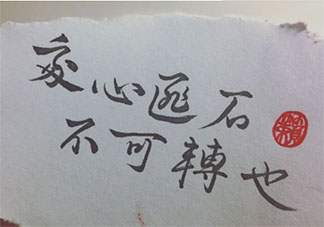 心匪石
不可轉也